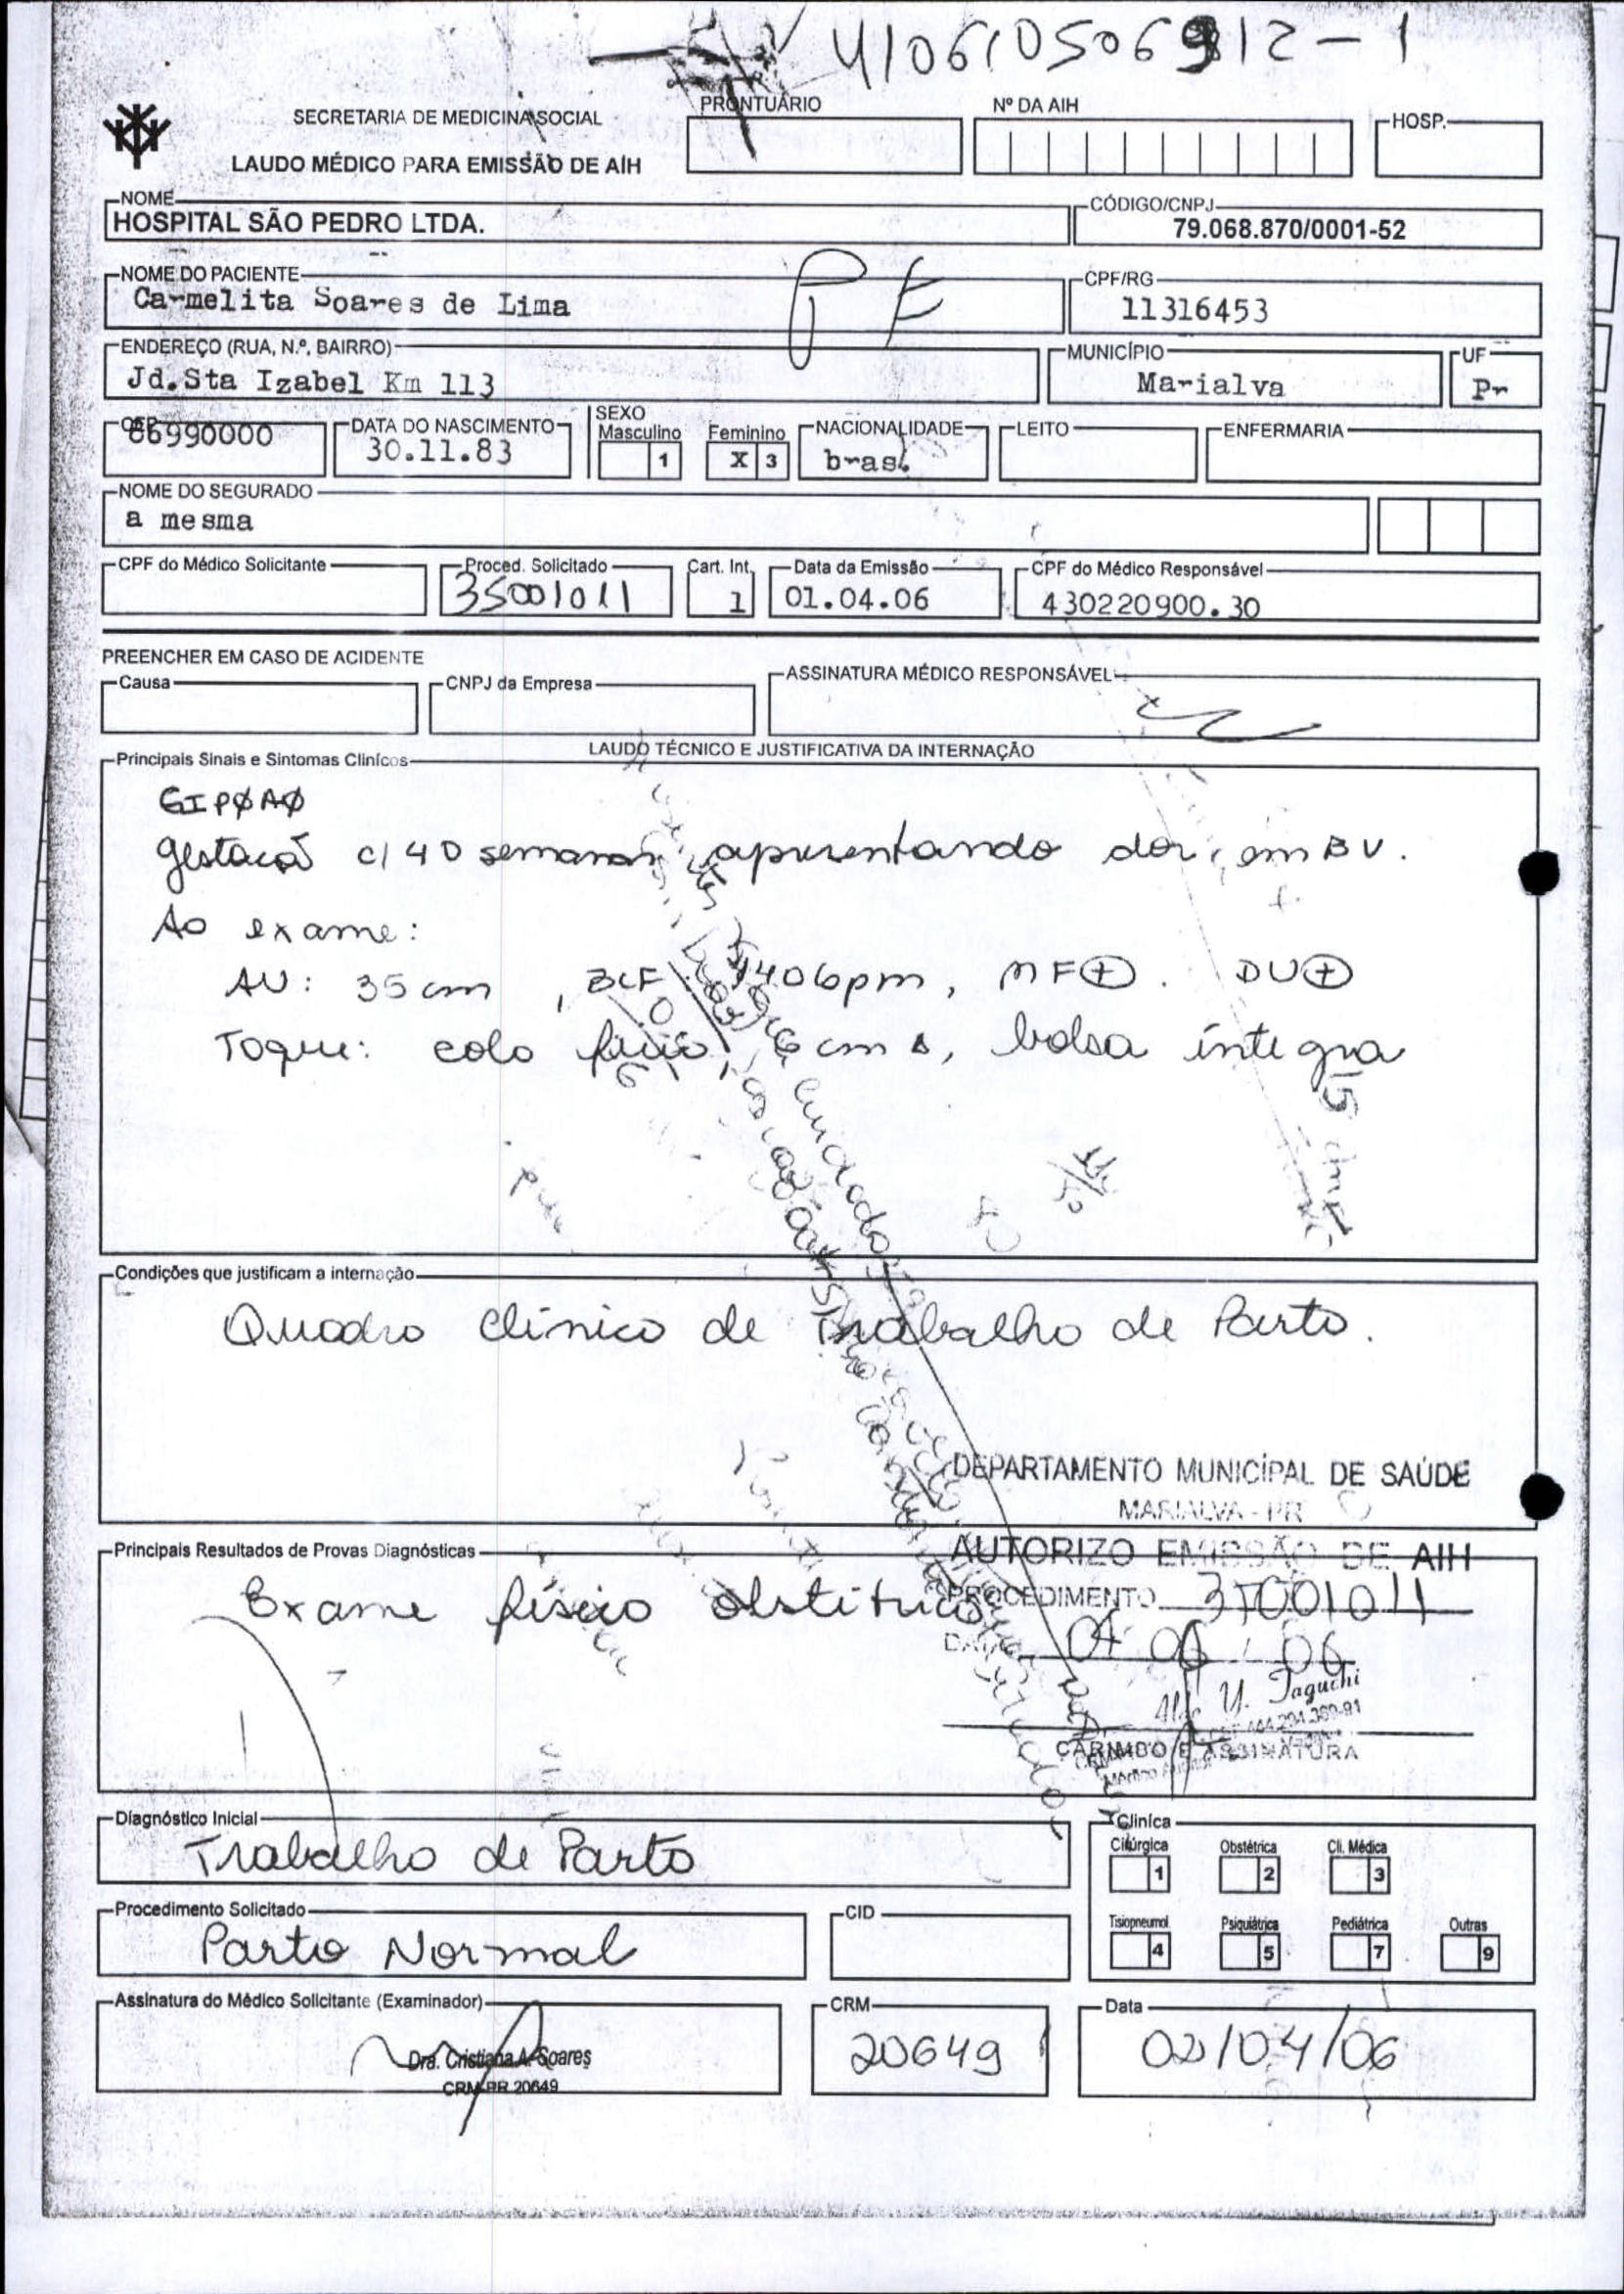 4106105069312-1
SECRETARIA DE MEDICINA SOCIAL
LAUDO MÉDICO PARA EMISSÃO DE AIH
PRONTUÁRIO
Nº DA AIH
HOSP.
NOME
HOSPITAL SÃO PEDRO LTDA.
CÓDIGO/CNPJ
79.068.870/0001-52
NOME DO PACIENTE
Carmelita Soares de Lima
CPF/RG
11316453
ENDEREÇO (RUA, N.º, BAIRRO)
Jd.Sta Izabel Km 113
MUNICÍPIO
Marialva
UF
Pr
CEP
86990000
DATA DO NASCIMENTO
30.11.83
SEXO
Masculino 1
Feminino X 3
NACIONALIDADE
bras.
LEITO
ENFERMARIA
NOME DO SEGURADO
a mesma
CPF do Médico Solicitante
Proced. Solicitado
35001011
Cart. Int.
1
Data da Emissão
01.04.06
CPF do Médico Responsável
430220900.30
PREENCHER EM CASO DE ACIDENTE
Causa
CNPJ da Empresa
ASSINATURA MÉDICO RESPONSÁVEL
LAUDO TÉCNICO E JUSTIFICATIVA DA INTERNAÇÃO
Principais Sinais e Sintomas Clínicos
GIPØAØ
gestação c/ 40 semanas apresentando dor, em BV.
Ao exame:
AU: 35 cm, BCF 140 bpm, MF⊕. DU⊕
Toque: colo 6 cms, bolsa íntegra
Condições que justificam a internação
Quadro clínico de Trabalho de Parto.
DEPARTAMENTO MUNICIPAL DE SAÚDE
MARIALVA - PR
Principais Resultados de Provas Diagnósticas
AUTORIZO EMISSÃO DE AIH
Exame físico obstétrico
PROCEDIMENTO 35001011
DATA
Y. Taguchi
CARIMBO E ASSINATURA
Diagnóstico Inicial
Trabalho de Parto
Clínica
Cirúrgica 1
Obstétrica 2
Cli. Médica 3
Tisiopneumol. 4
Psiquiátrica 5
Pediátrica 7
Outras 9
Procedimento Solicitado
Parto Normal
CID
Assinatura do Médico Solicitante (Examinador)
Dra. Cristiana A. Soares
CRM-PR 20649
CRM
20649
Data
02/04/06